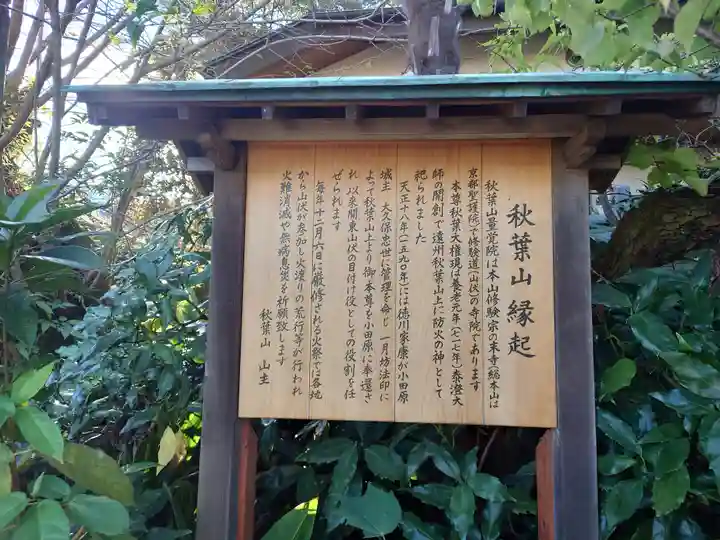 秋葉山縁起
秋葉山量覚院は本山修験宗の末寺(総本山は
京都聖護院で修験道(山伏)の寺院であります
本尊秋葉大権現は養老元年(七一七年)泰澄大
師の開創で遠州秋葉山上に防火の神として
祀られました
天正十八年(一五九〇年)には徳川家康が小田原
城主 大久保忠世に管理を命じ 一月坊法印に
よって秋葉山上より御本尊を小田原に奉遷さ
れ 以来関東山伏の目付け役としての役割を任
ぜられます
毎年十二月六日に厳修される火祭では各地
から山伏が参加し火渡りの荒行等が行われ
火難消滅や無病息災を祈願致します
秋葉山 山主